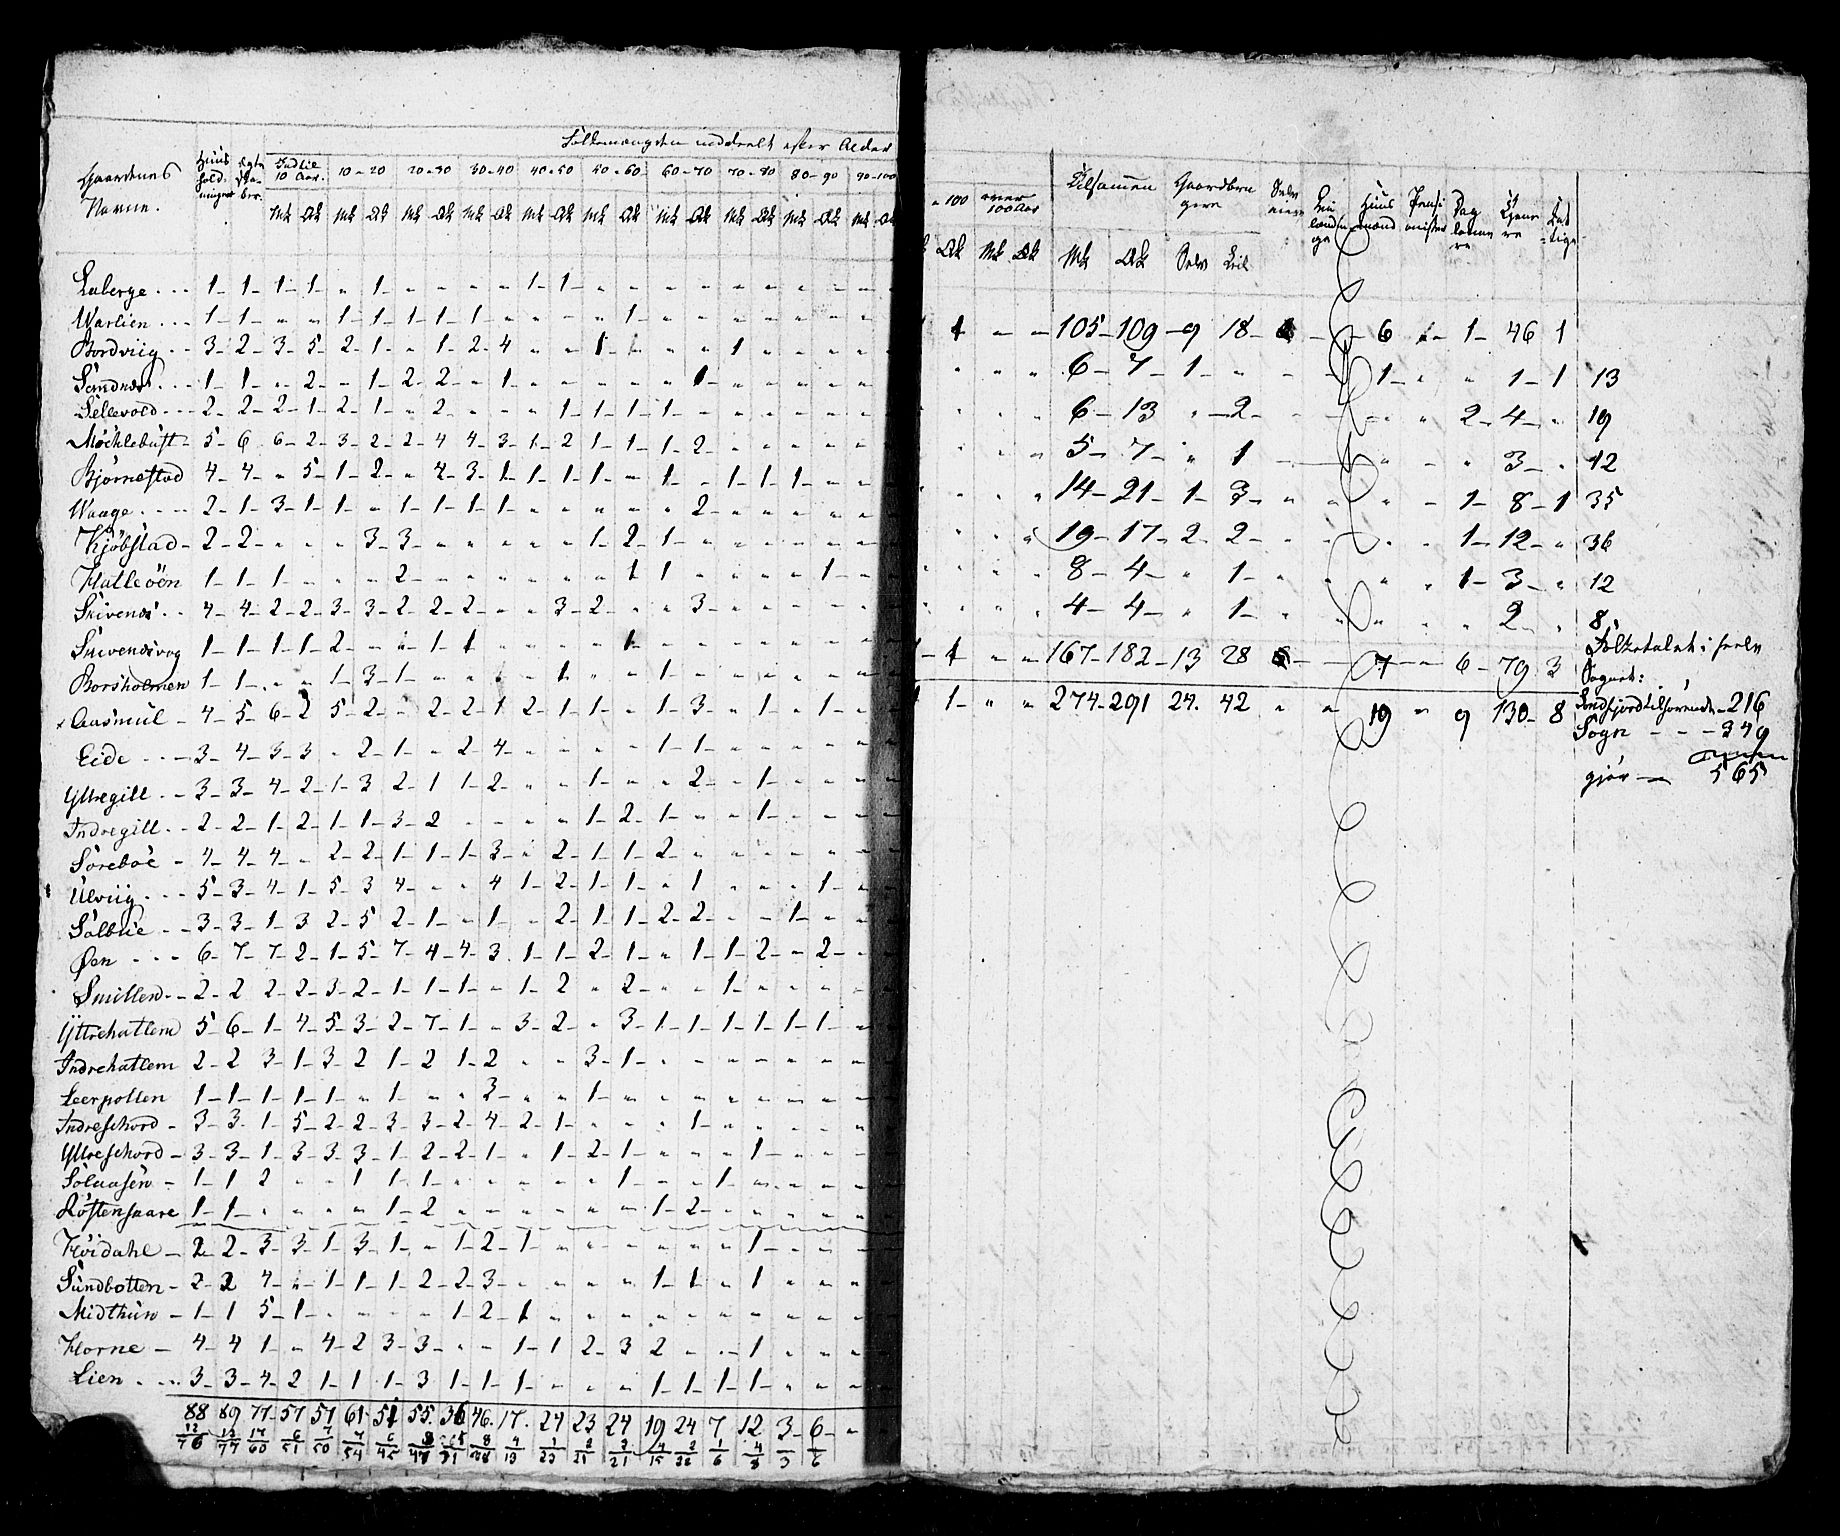 Folkemængden inddeelt efter Alder
Gaardenes Navne. Huus hold- ninger Egte Ska- ber. Indtil 10 Aar. 10-20 20-30 30-40 40-50 50-60 60-70 70-80 80-90 90-100
Mk Qk Mk Qk Mk Qk Mk Qk Mk Qk Mk Qk Mk Qk Mk Qk Mk Qk Mk Qk
Laberge . . . 1 - 1 - 1 - 1 - " - 1 - " " " " 1 - 1 - " " " " " " " "
Warlien . . . 1 - 1 - " " 1 - 1 - 1 - 1 - 1 - " " " " 1 - " " " " " "
Bordviig . . 3 - 2 - 3 - 5 - 2 - 1 - " 1 - 2 - 4 - " " 1 - 1 - " " 1 - " " "
Sandnes . . . 1 - 1 - " 2 - " 1 - 2 - 2 - " 1 - " " " " " 1 - " " " "
Sellevold . . . 2 - 2 - 2 - 1 - 2 - 1 - " 2 - " " " 1 - 1 - 1 - 1 - " " " " "
Møchlebust - 5 - 6 - 6 - 2 - 3 - 2 - 2 - 4 - 4 - 3 - 1 - 2 - 1 - 1 - 1 - 2 - " " " "
Bjørnestad 4 - 4 - " 5 - 1 - 2 - " 4 - 3 - 1 - 1 - 1 - 1 - " 1 - " 1 - 1 - 1 - "
Waage . . . . 2 - 1 - 3 - 1 - 1 - " 1 - 1 - 1 - 1 - " " " " " 2 - " " " "
Kjøbstad - 2 - 2 - " " " 3 - 3 - " " " " " 1 - 2 - 1 - " " " " "
Halleöen 1 - 1 - 1 - " " " 2 - " " " " " " 1 - 1 - " " " " 1 -
Skivenes . . 4 - 4 - 2 - 2 - 3 - 3 - 2 - 2 - 2 - " " 3 - 2 - " " 3 - " " " "
Skivenesvog 1 - 1 - 1 - 1 - 2 - " " 1 - 1 - " " " " 1 - " " " " " "
Borsholmen 1 - 1 - " " 1 - 3 - 1 - " " " " 1 - " 1 - " " " " " "
x Aasmul - 4 - 5 - 6 - 2 - 5 - 2 - " 2 - 2 - 1 - 2 - 1 - 1 - " 1 - 3 - " 1 - " 1 -
Eide . . . - 3 - 4 - 3 - 3 - " 2 - 1 - " 2 - 4 - " " " " 1 - 1 - " " " "
Yttregill . . - 3 - 3 - 4 - 2 - 1 - 3 - 2 - 1 - 1 - 2 - " " 1 - " " 2 - " 1 - " "
Indregill . . - 2 - 2 - 1 - 2 - 1 - 1 - 3 - 2 " " " " 1 - 2 - 1 - " " 1 - " "
Sörebøe - 4 - 4 - 4 - " 2 - 2 - 1 - 1 - 1 - 3 - " 2 - 1 - 1 - 2 - " " " " "
Ulviig . . . 5 - 3 - 4 - 1 - 5 - 3 - 4 - " " 4 - 1 - 2 - 1 - 1 - " 1 - " " " 1 -
Solbue . - 3 - 3 - 1 - 3 - 2 - 5 - 2 - 1 - " 1 - " 2 - 1 - 1 - 2 - 2 - " " 1 - "
Øen . . . 6 - 7 - 7 - 2 - 1 - 5 - 7 - 4 - 4 - 3 - 1 - 1 - 2 - 1 - " 1 - 1 - 2 - " 2 -
Smillem . - 2 - 2 2 - 2 - 3 - 2 - 1 - 1 - 1 - " 1 - 2 " 2 - " " 1 - " " "
Yttrehatlem 5 - 6 - 1 - 4 - 5 - 3 - 2 - 7 - 1 - " 3 - 2 - " 3 - 1 - 1 - 1 - 1 - 1 - 1 -
Indrehatlem 2 - 2 3 - 1 - 3 - 2 1 - 2 1 - 2 - " " 3 - 1 - " " " " " "
Leerpollen 1 - 1 - 1 - 1 - 1 - " 1 - " " 3 - " " 1 - " " " " " " "
Indreschord - 3 - 3 - 1 - 5 - 2 - 2 - 3 - 3 - 2 - 4 - 2 - 1 - " " " 1 - " " " "
Yttreschord - 3 - 3 - 1 - 3 - 3 - 3 - 1 - 2 - 2 - 1 - " 1 - 2 - 1 - " " " 1 - " "
Solaasen - 1 - 1 2 - " " 1 1 - 1 - " " " " " 1 - " " 1 - " " "
Røstensaare 1 - 1 - " " " " 1 - 2 - " " " " " " 1 - 2 - " " " "
Høidahl - 2 - 2 - 3 - 3 - 1 - 3 - 1 - " 1 - 2 - 1 - " " " " " " 1 - " "
Sundbotten - 2 - 2 4 - " 1 - 1 - 1 - 2 - 2 - 3 - " " " " 1 - 1 - " 1 - " "
Midthun - 1 - 1 5 - 1 - " " " " 1 - 2 - 1 - " " " " " " " " "
Horne - 4 - 4 1 - " 4 - 2 3 - 3 - " " 1 - 1 2 - 3 2 - " " 1 - " "
Lien . . . 3 - 3 - 4 - 2 1 - 1 1 - 3 1 - 1 - 1 - " " " 1 - 1 - 1 - 1 - " "
88 89 77 - 57 57 61 - 51 55 . 36 46 . 17 . 24 23 24 19 24 7 12 3 - 6 -
- 100 over 100 Aar Tilsamen Gaardbru gere Selv eiere Lei lænd ge Huus mænd Pensi onister Dag lønne re Tjene re Fat tige
Qk Mk Qk Mk Qk Selv Leil
1 " " 105 - 109 - 9 18 - 6 " 1 - 46 1
" " " 6 - 7 - 1 - " " 1 - " " 1 - 1 13
" " " 6 - 13 " 2 - " " 2 - 4 - " 19
" " " 5 - 7 - " 1 " " 3 - " 12
" " " 14 - 21 - 1 - 3 - " " " 1 - 8 - 1 35
" " " 19 - 17 - 2 - 2 - " " " 1 - 12 - " 36
" " " 8 - 4 - " 1 - " " " 1 - 3 - " 12
" " " 4 - 4 - " 1 - " " " " 2 - " 8
Folketalet i heele
1 - " " 167 - 182 - 13 28 - 7 - " 6 - 79 3 Sognet:
1 - " " 274 - 291 24 . 42 " " 19 " 9 130 - 8 Indfjord tilhørende - 216
Sogn - - - 349
gjør - 565